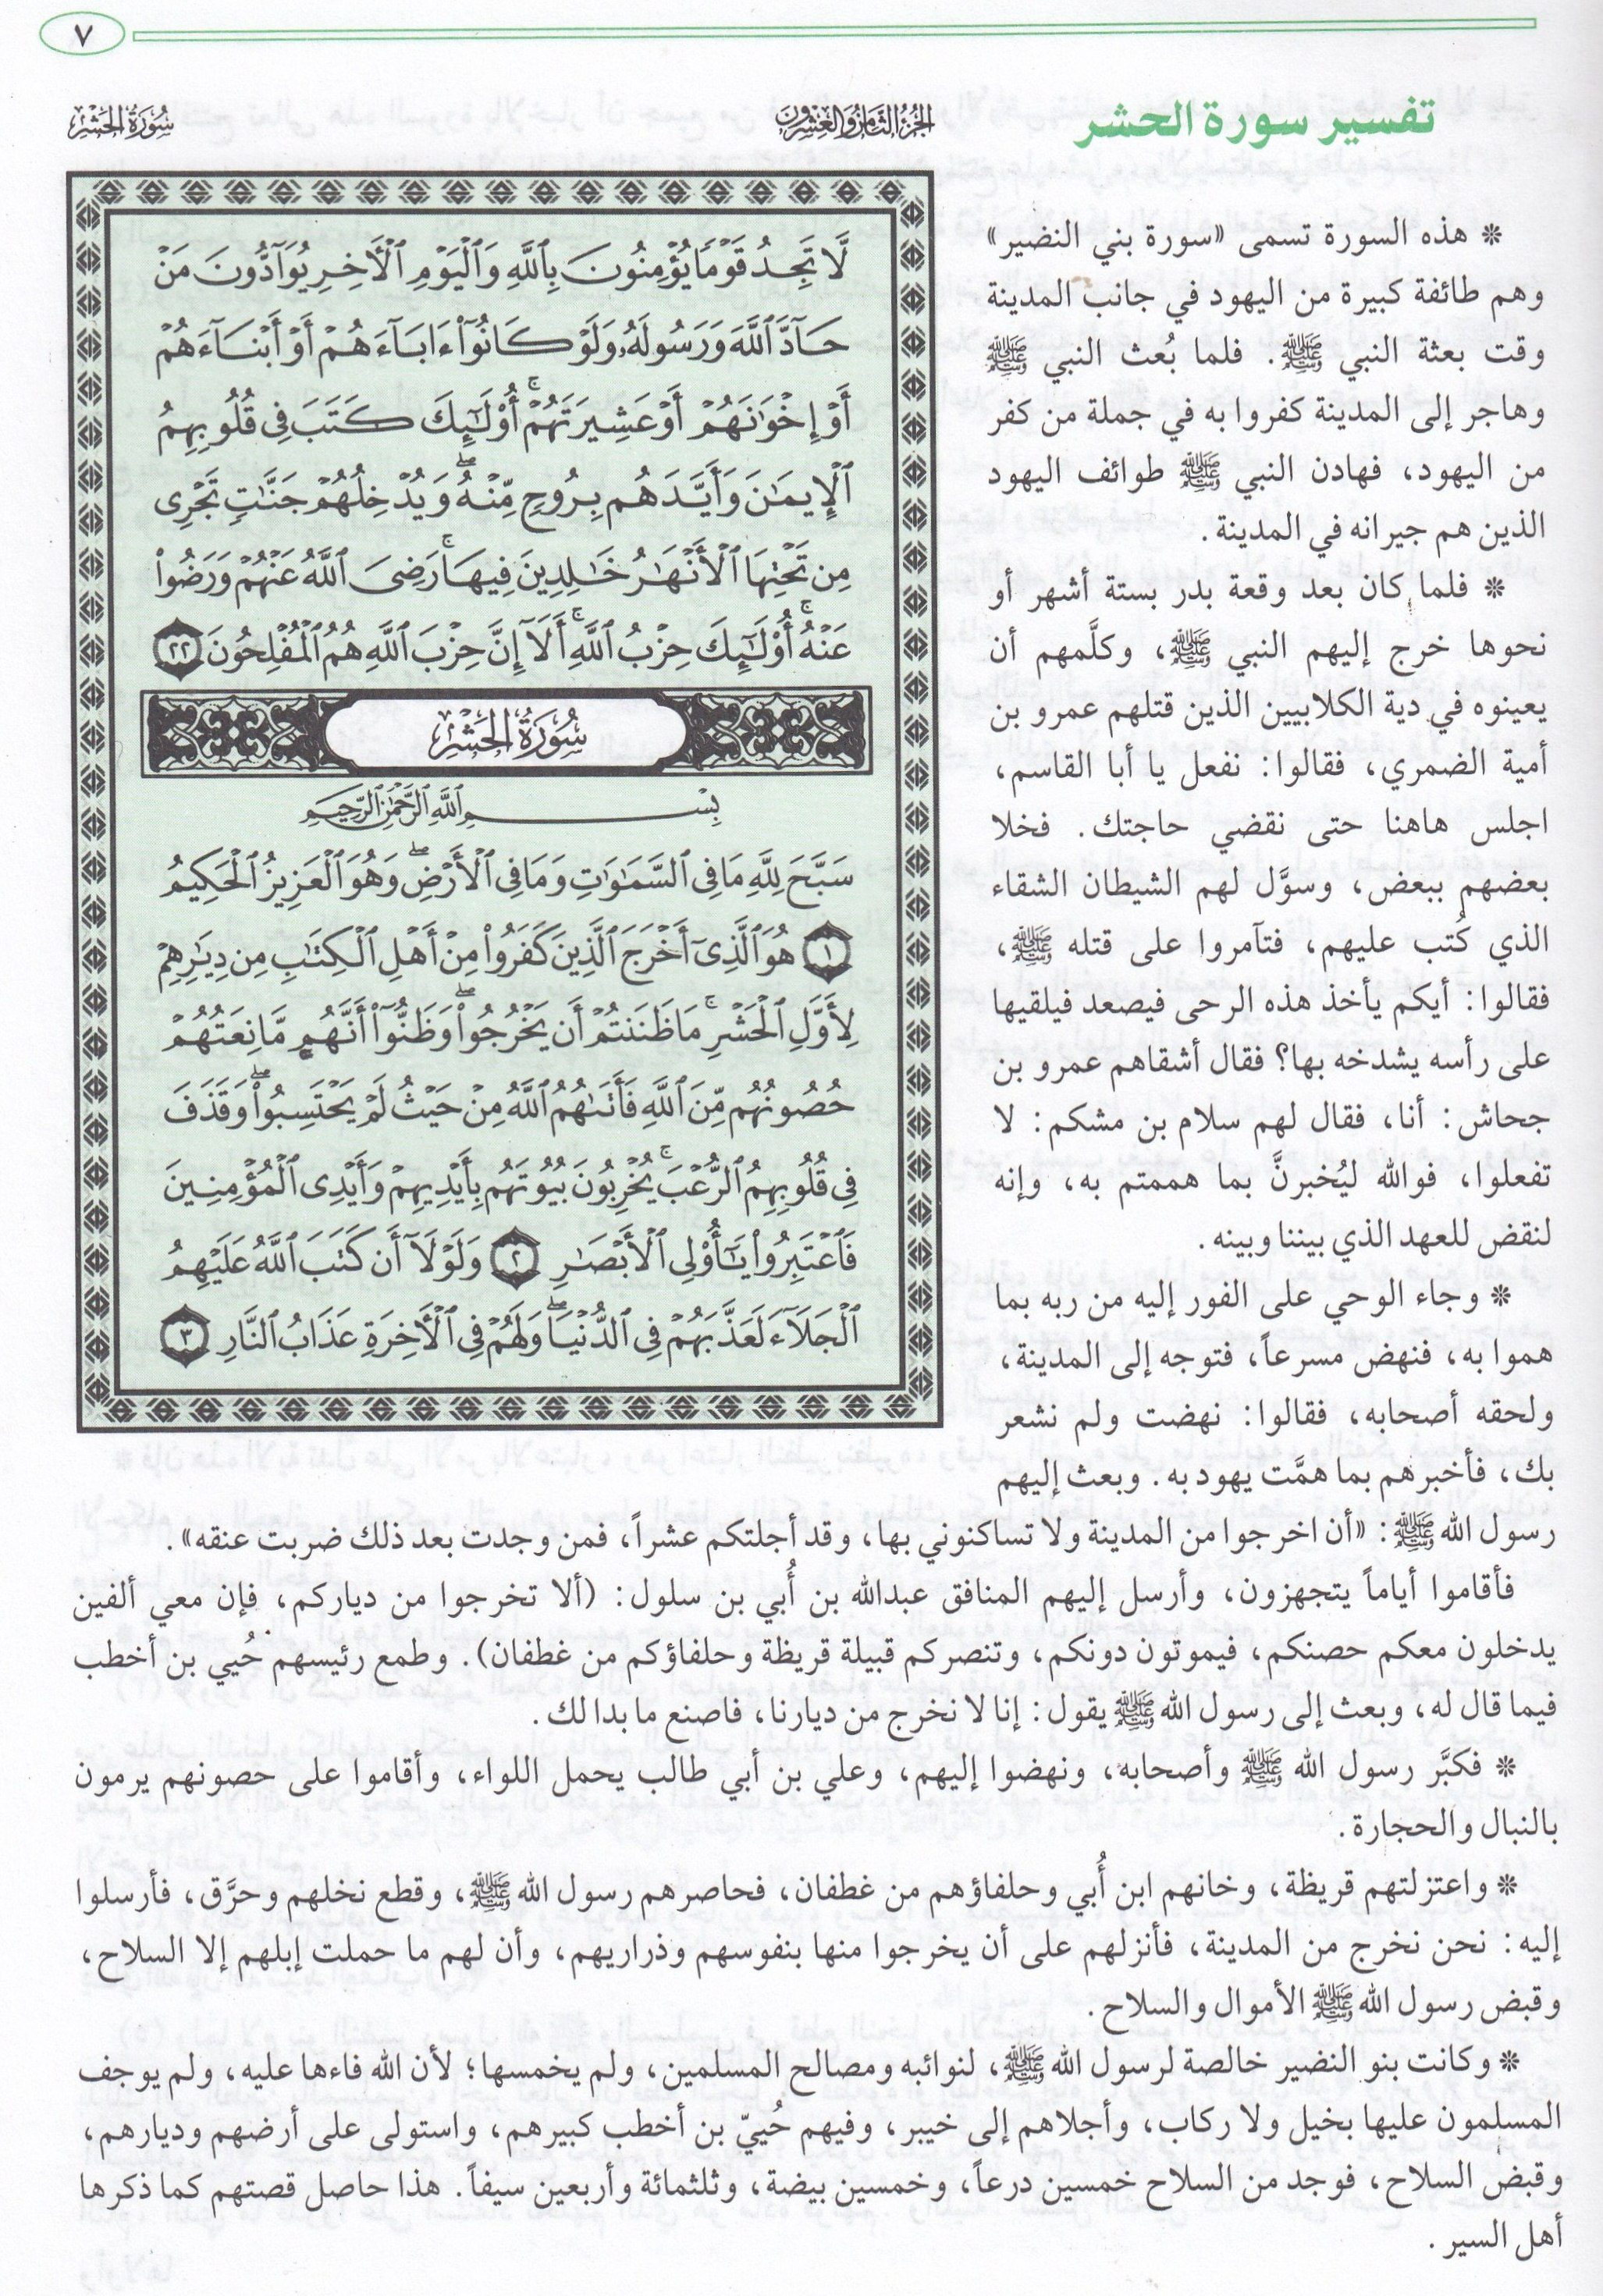 ٧
تفسير سورة الحشر
الجزء الثامن والعشرون
سورة الحشر
لَّا تَجِدُ قَوْمًا يُؤْمِنُونَ بِٱللَّهِ وَٱلْيَوْمِ ٱلْـَٔاخِرِ يُوَآدُّونَ مَنْ
حَآدَّ ٱللَّهَ وَرَسُولَهُۥ وَلَوْ كَانُوٓا۟ ءَابَآءَهُمْ أَوْ أَبْنَآءَهُمْ
أَوْ إِخْوَٰنَهُمْ أَوْ عَشِيرَتَهُمْ ۚ أُو۟لَٰٓئِكَ كَتَبَ فِى قُلُوبِهِمُ
ٱلْإِيمَٰنَ وَأَيَّدَهُم بِرُوحٍ مِّنْهُ ۖ وَيُدْخِلُهُمْ جَنَّٰتٍ تَجْرِى
مِن تَحْتِهَا ٱلْأَنْهَٰرُ خَٰلِدِينَ فِيهَا ۚ رَضِىَ ٱللَّهُ عَنْهُمْ وَرَضُوا۟
عَنْهُ ۚ أُو۟لَٰٓئِكَ حِزْبُ ٱللَّهِ ۚ أَلَآ إِنَّ حِزْبَ ٱللَّهِ هُمُ ٱلْمُفْلِحُونَ ٢٢
سُورَةُ الحَشْرِ
بِسْمِ ٱللَّهِ ٱلرَّحْمَٰنِ ٱلرَّحِيمِ
سَبَّحَ لِلَّهِ مَا فِى ٱلسَّمَٰوَٰتِ وَمَا فِى ٱلْأَرْضِ ۖ وَهُوَ ٱلْعَزِيزُ ٱلْحَكِيمُ
١ هُوَ ٱلَّذِىٓ أَخْرَجَ ٱلَّذِينَ كَفَرُوا۟ مِنْ أَهْلِ ٱلْكِتَٰبِ مِن دِيَٰرِهِمْ
لِأَوَّلِ ٱلْحَشْرِ ۚ مَا ظَنَنتُمْ أَن يَخْرُجُوا۟ ۖ وَظَنُّوٓا۟ أَنَّهُم مَّانِعَتُهُمْ
حُصُونُهُم مِّنَ ٱللَّهِ فَأَتَىٰهُمُ ٱللَّهُ مِنْ حَيْثُ لَمْ يَحْتَسِبُوا۟ ۖ وَقَذَفَ
فِى قُلُوبِهِمُ ٱلرُّعْبَ ۚ يُخْرِبُونَ بُيُوتَهُم بِأَيْدِيهِمْ وَأَيْدِى ٱلْمُؤْمِنِينَ
فَٱعْتَبِرُوا۟ يَٰٓأُو۟لِى ٱلْأَبْصَٰرِ ٢ وَلَوْلَآ أَن كَتَبَ ٱللَّهُ عَلَيْهِمُ
ٱلْجَلَآءَ لَعَذَّبَهُمْ فِى ٱلدُّنْيَا ۖ وَلَهُمْ فِى ٱلْـَٔاخِرَةِ عَذَابُ ٱلنَّارِ ٣
* هذه السورة تسمى «سورة بني النضير»
وهم طائفة كبيرة من اليهود في جانب المدينة
وقت بعثة النبي ﷺ. فلما بُعث النبي ﷺ
وهاجر إلى المدينة كفروا به في جملة من كفر
من اليهود، فهادن النبي ﷺ طوائف اليهود
الذين هم جيرانه في المدينة.
* فلما كان بعد وقعة بدر بستة أشهر أو
نحوها خرج إليهم النبي ﷺ، وكلَّمهم أن
يعينوه في دية الكلابيين الذين قتلهم عمرو بن
أمية الضمري، فقالوا: نفعل يا أبا القاسم،
اجلس هاهنا حتى نقضي حاجتك. فخلا
بعضهم ببعض، وسوَّل لهم الشيطان الشقاء
الذي كُتب عليهم، فتآمروا على قتله ﷺ،
فقالوا: أيكم يأخذ هذه الرحى فيصعد فيلقيها
على رأسه يشدخه بها؟ فقال أشقاهم عمرو بن
جحاش: أنا، فقال لهم سلام بن مشكم: لا
تفعلوا، فوالله ليُخبرنَّ بما هممتم به، وإنه
لنقض للعهد الذي بيننا وبينه.
* وجاء الوحي على الفور إليه من ربه بما
هموا به، فنهض مسرعاً، فتوجه إلى المدينة،
ولحقه أصحابه، فقالوا: نهضت ولم نشعر
بك، فأخبرهم بما همَّت يهود به. وبعث إليهم
رسول الله ﷺ: «أن اخرجوا من المدينة ولا تساكنوني بها، وقد أجلتكم عشراً، فمن وجدت بعد ذلك ضربت عنقه».
فأقاموا أياماً يتجهزون، وأرسل إليهم المنافق عبدالله بن أُبي بن سلول: (ألا تخرجوا من دياركم، فإن معي ألفين
يدخلون معكم حصنكم، فيموتون دونكم، وتنصركم قبيلة قريظة وحلفاؤكم من غطفان). وطمع رئيسهم حُيي بن أخطب
فيما قال له، وبعث إلى رسول الله ﷺ يقول: إنا لا نخرج من ديارنا، فاصنع ما بدا لك.
* فكبَّر رسول الله ﷺ وأصحابه، ونهضوا إليهم، وعلي بن أبي طالب يحمل اللواء، وأقاموا على حصونهم يرمون
بالنبال والحجارة.
* واعتزلتهم قريظة، وخانهم ابن أُبي وحلفاؤهم من غطفان، فحاصرهم رسول الله ﷺ، وقطع نخلهم وحرَّق، فأرسلوا
إليه: نحن نخرج من المدينة، فأنزلهم على أن يخرجوا منها بنفوسهم وذراريهم، وأن لهم ما حملت إبلهم إلا السلاح،
وقبض رسول الله ﷺ الأموال والسلاح.
* وكانت بنو النضير خالصة لرسول الله ﷺ، لنوائبه ومصالح المسلمين، ولم يخمسها؛ لأن الله فاءها عليه، ولم يوجف
المسلمون عليها بخيل ولا ركاب، وأجلاهم إلى خيبر، وفيهم حُييّ بن أخطب كبيرهم، واستولى على أرضهم وديارهم،
وقبض السلاح، فوجد من السلاح خمسين درعاً، وخمسين بيضة، وثلثمائة وأربعين سيفاً. هذا حاصل قصتهم كما ذكرها
أهل السير.